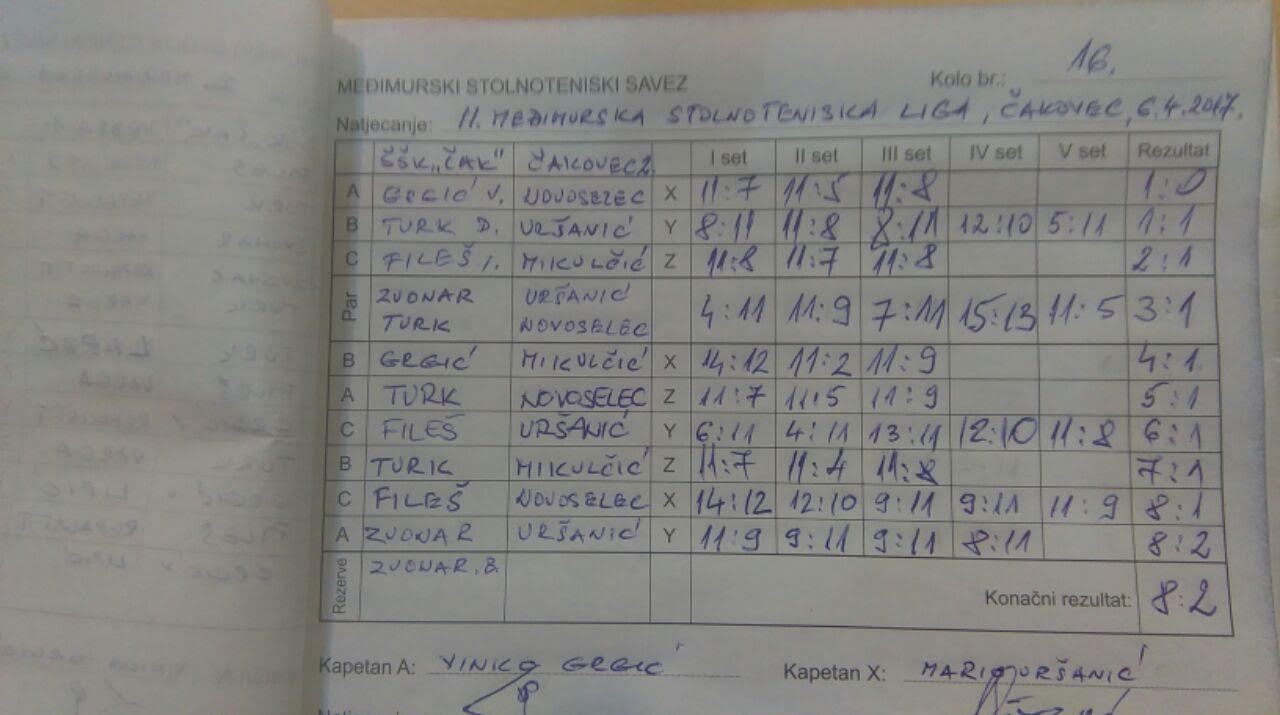 MEĐIMURSKI STOLNOTENISKI SAVEZ Kolo br.: 16.
Natjecanje: II. MEĐIMURSKA STOLNOTENISKA LIGA, ČAKOVEC, 6.4.2017.
ŠŠK „ČAK" ČAKOVEC 2. I set II set III set IV set V set Rezultat
A GRGIĆ V. NOVOSELEC X 11:7 11:5 11:8 1:0
B TURK D. URŠANIĆ Y 8:11 11:8 8:11 12:10 5:11 1:1
C FILEŠ I. MIKULČIĆ Z 11:8 11:7 11:8 2:1
Par ZVONAR URŠANIĆ 4:11 11:9 7:11 15:13 11:5 3:1
TURK NOVOSELEC
B GRGIĆ MIKULČIĆ X 14:12 11:2 11:9 4:1
A TURK NOVOSELEC Z 11:7 11:5 11:9 5:1
C FILEŠ URŠANIĆ Y 6:11 4:11 13:11 12:10 11:8 6:1
B TURK MIKULČIĆ Z 11:7 11:4 11:8 7:1
C FILEŠ NOVOSELEC X 14:12 12:10 9:11 9:11 11:9 8:1
A ZVONAR URŠANIĆ Y 11:9 9:11 9:11 8:11 8:2
Rezerve ZVONAR.B. Konačni rezultat: 8:2
Kapetan A: VINKO GRGIĆ Kapetan X: MARIO URŠANIĆ